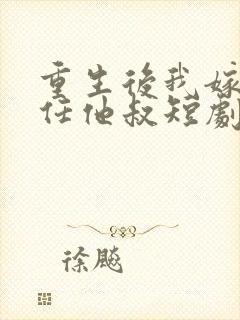 重生後我嫁
任他叔短劇
徐飈